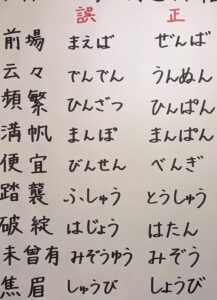 誤 正
前場 まえば ぜんば
云々 でんでん うんぬん
頻繁 ひんざつ ひんぱん
満帆 まんぽ まんぱん
便宜 びんせん べんぎ
踏襲 ふしゅう とうしゅう
破綻 はじょう はたん
未曾有 みぞうゆう みぞう
焦眉 しゅうび しょうび